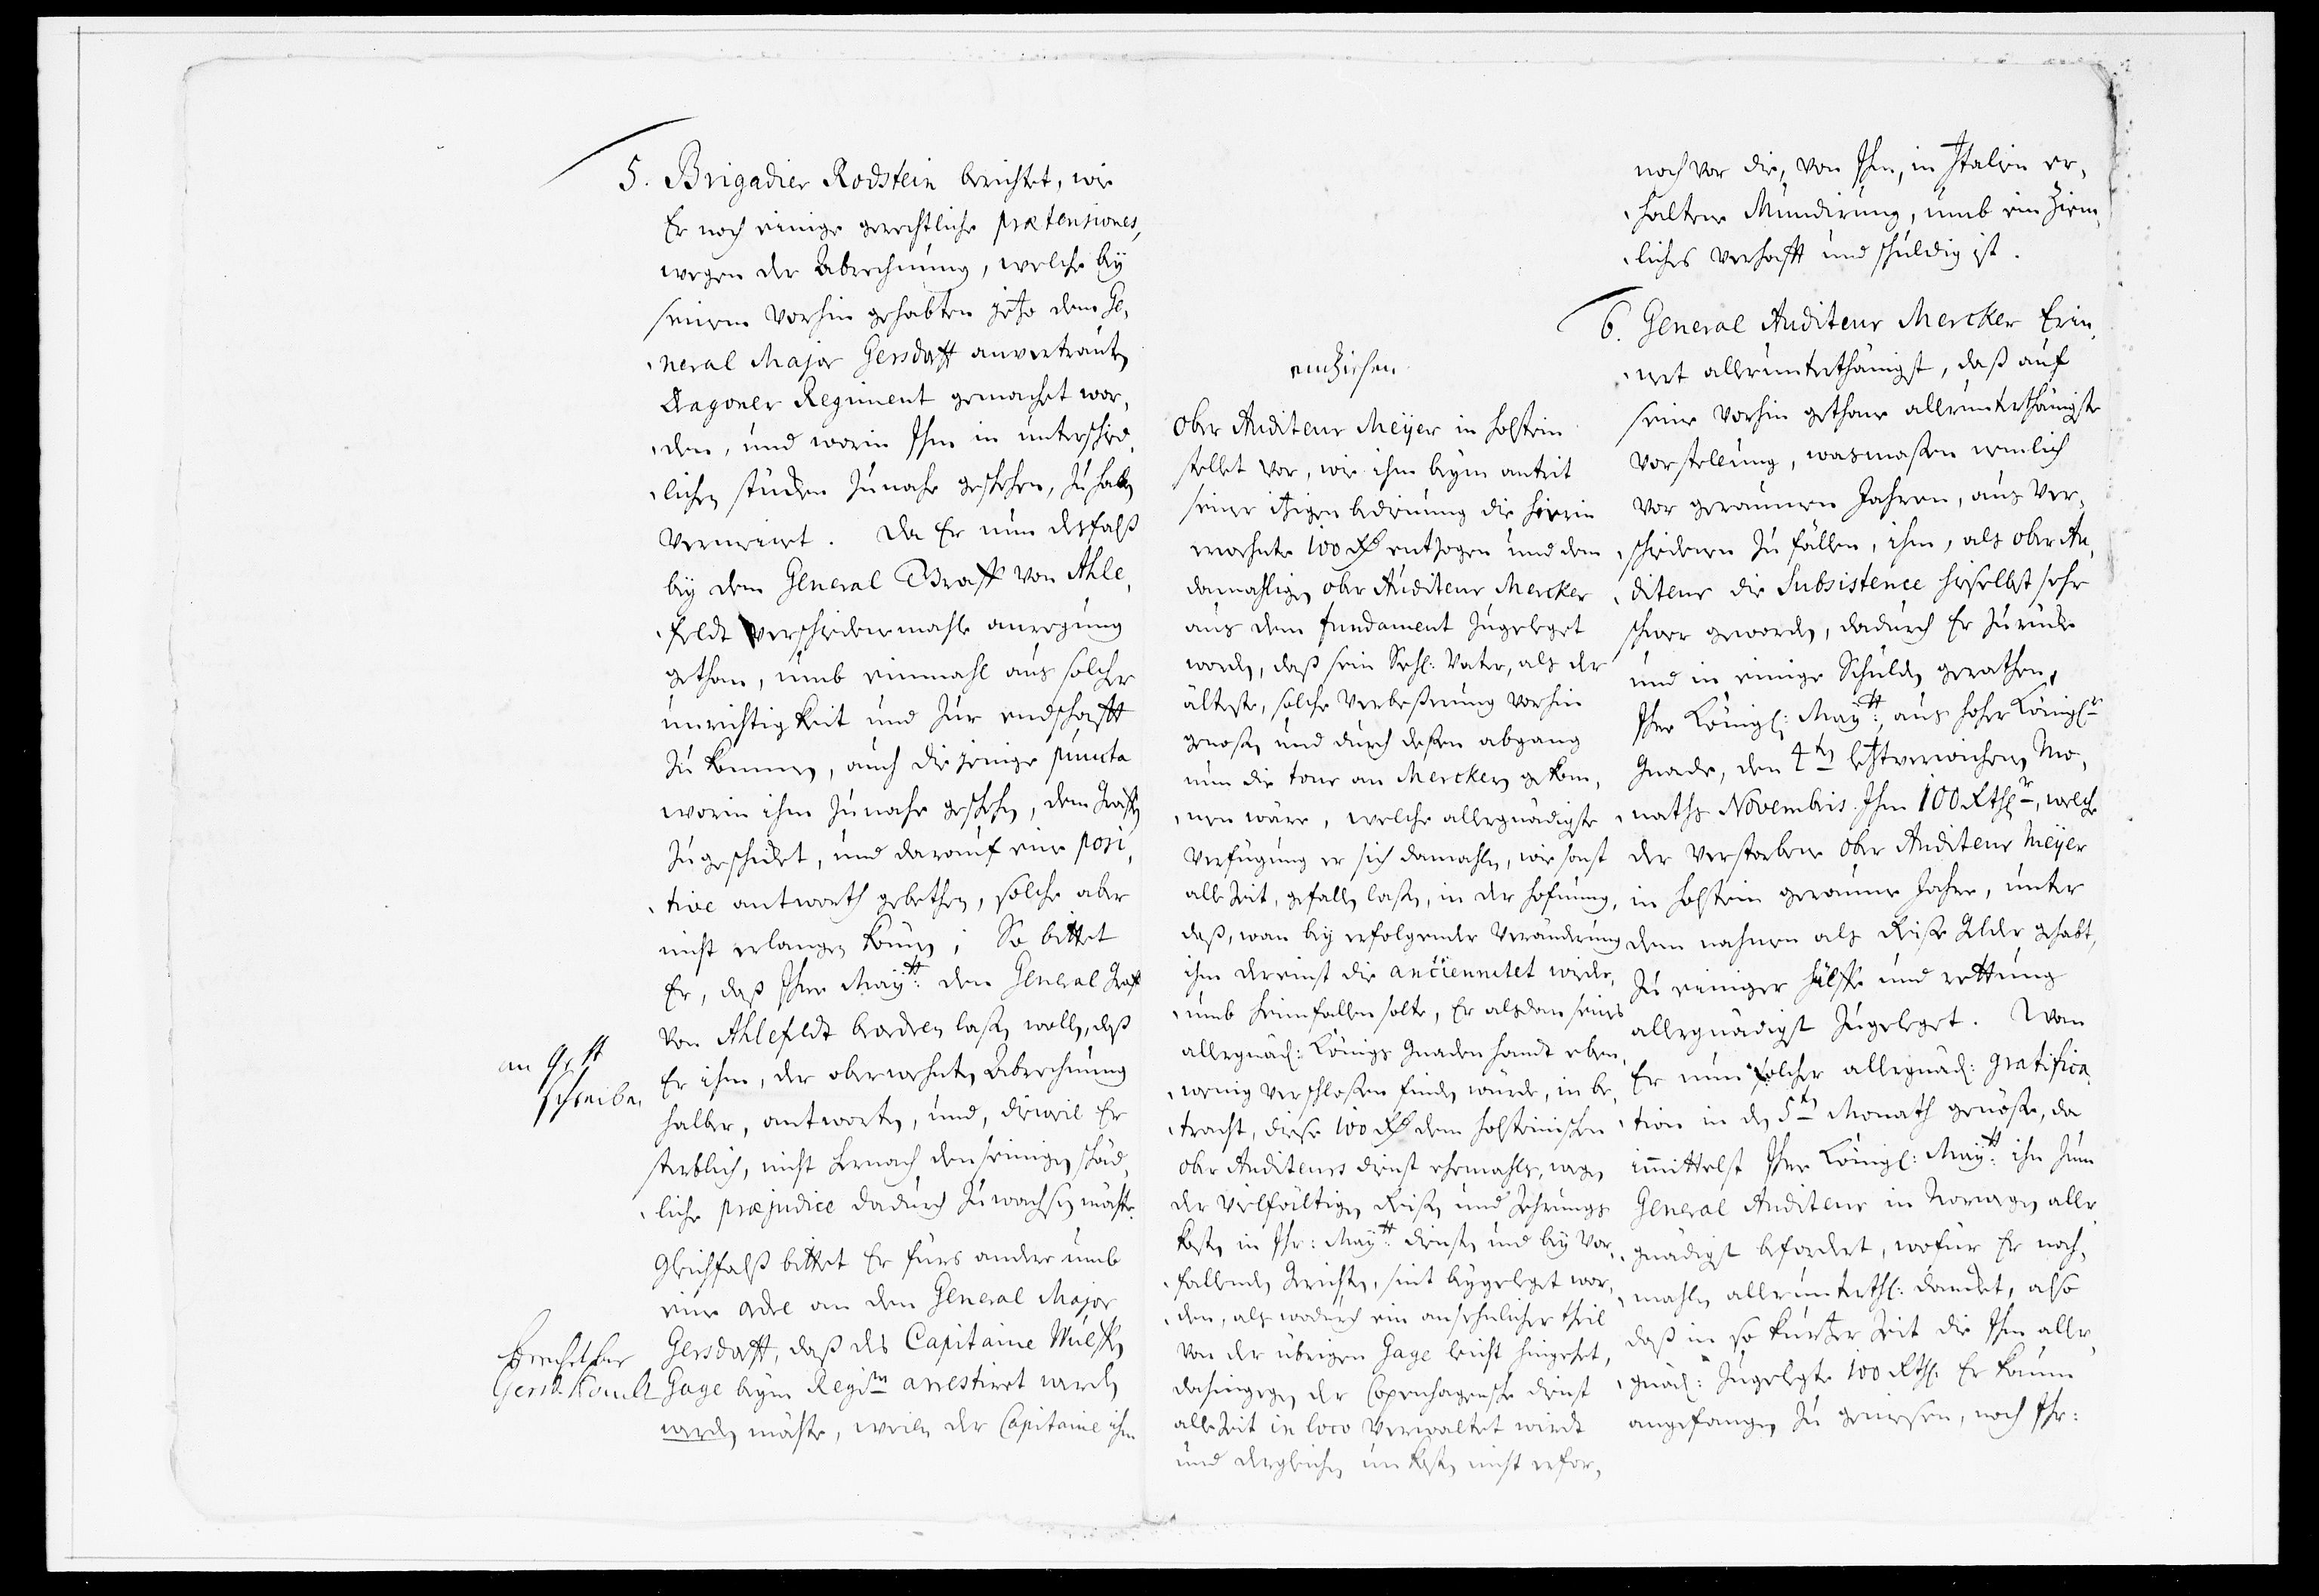 5. Brigadier Rodstein berichtet, wie
Er noch einige gerechtliche prætensiones,
wegen der Abrechnung, welche beÿ
seinem vorhin gehabten jetzo dem Ge,
neral Major Gersdorff anvertrauten
Dragoner Regiment gemachet wor,
den, und worin Ihm in unterschied,
lichen stücken zu nahe geschehen, zu haben
vermeinet. Da Er nun desfalß
beÿ dem General Graff von Ahle,
feldt verschiedenemahle anregung
gethan, umb einmahl aus solcher
unrichtigkeit und zur endschafft
zu kommen, auch diejenige puncta
worin ihm zu nahe geschehen, dem Graffen
zugeschickt, und darauf eine posi,
tive antworth gebethen, solche aber
nicht erlangen können; So bittet
Er, daß Ihre Maÿtt: dem General Graff
von Ahlefeldt beordern laßen wollen, daß
Er ihm, der oberwehnten Abrechnung
halber, antworten, und, dieweil Er
sterblich, nicht hernach den seinigen schäd,
liche præjudice dadurch zuwachsen möchte.
Gleichfalß bittet Er fürs andere umb
eine ordre an dem General Major
Gersdorff, daß des Capitaine Wulffen
Gage beÿm Regim arrestiret werden
werden möchte, weilen der Capitaine ihm
an
schreiben
Gersd.
einziehen
Ober Auditeur Meÿer in Holstein
stellet vor, wie ihm beÿm antrit
seiner itzigen bedienung die hierin
erwehnte 100 Rth entzogen und dem
damahligen ober Auditeur Mercker
aus dem fundament zugeleget
worden, daß sein Sehl: Vater, als der
älteste, solche Verbeßerung vorhin
genoßen und durch deßen abgang
nun die tour an Merckern gekom,
men wäre, welche allergnädigste
Verfügung er sich damahlen, wie sonst
alle Zeit, gefallen laßen, in der hofnung,
daß, wan beÿ erfolgender Veränderung
ihm dereinst die anciennitet wieder,
umb heimfallen solte, Er alsdan seines
allergnäd: Königs Gnadenhandt eben
wenig verschloßen finden würde, in be,
tracht, diese 100 Rth dem holsteinischen
ober Auditeurs dienst ehemahls, wegen
der vielfältigen Reisen und Zehrungs
kosten in Ihr: Maÿtt: dienst, und beÿ vor,
fallenden Gerichten, sint beÿgeleget wor,
den, als wodurch ein ansehnlicher theil
von der übrigen Gage leicht hingehet,
dahingegen der Copenhagensche dienst
alle Zeit in loco verwaltet wirdt
und dergleichen unkosten nicht erfor,
noch vor die, von Ihm, in Italien er,
haltene Mundirung, umb ein Ziem,
liches verhafft und schuldig ist.
6. General Auditeur Mercker Erin,
nert allerunterthänigst, daß auf
seine vorhin gethane allerunterthänigste
vorstellung, wasmaßen nemlich
vor geraumen Jahren, aus ver,
schiedenen zufällen, ihm, als ober Au,
diteur die Subsistence hieselbst sehr
schwer geworden, dadurch Er zurücke
und in einige Schulden gerathen,
Ihre Königl: Maÿtt: aus hoher Königlr
Gnade, den 4ten letztverwichenen Mo,
naths Novembris Ihm 100 Rthlr, welche
der verstorbene Ober Auditeur Meÿer
in holstein geraume Jahre, unter
dem nahmen als Reise Gelder gehabt,
zu einiger hülffe und rettung
allergnädigst zugeleget. Wan
Er nun solcher allergnäd: gratifica,
tion in den 5ten Monath genöße, da
inmittelst Ihre Königl: Maÿtt: ihn zum
General Auditeur in Norwegen aller,
gnädigst befordert, wofür Er noch,
mahlen allerunterth: dancket, also
daß in so kurtzer Zeit die Ihm aller,
gnäd: zugelegte 100 Rth. Er kaum
angefangen zu genießen, noch Ihr: